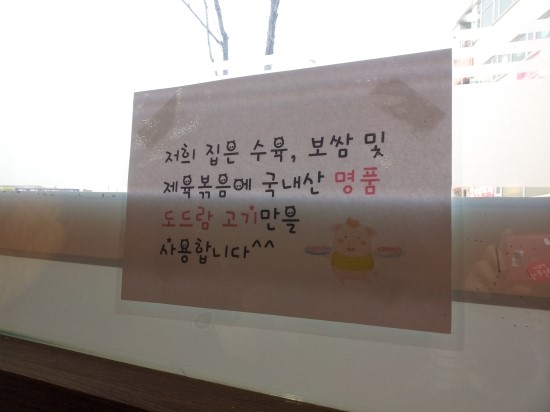 저희 집은 수육, 보쌈 및
제육볶음에 국내산 명품
도드람 고기만을
사용합니다^^